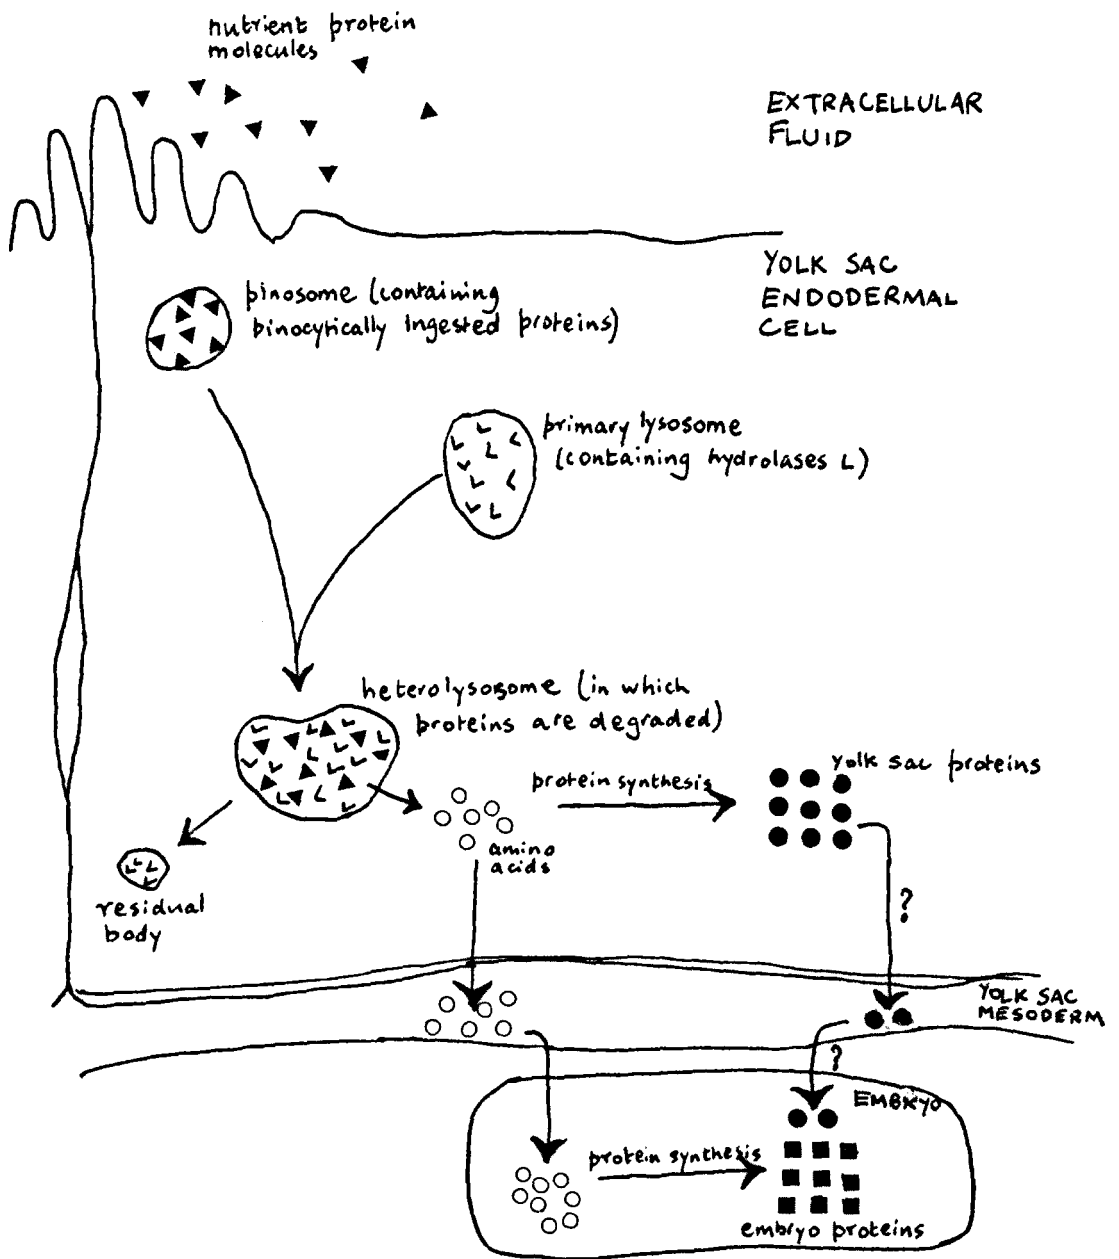 nutrient protein
molecules
EXTRACELLULAR
FLUID
YOLK SAC
ENDODERMAL
CELL
pinosome (containing
pinocytically ingested proteins)
primary lysosome
(containing hydrolases L)
heterolysosome (in which
proteins are degraded)
protein synthesis
yolk sac proteins
amino
acids
residual
body
?
YOLK SAC
MESODERM
?
EMBRYO
protein synthesis
embryo proteins